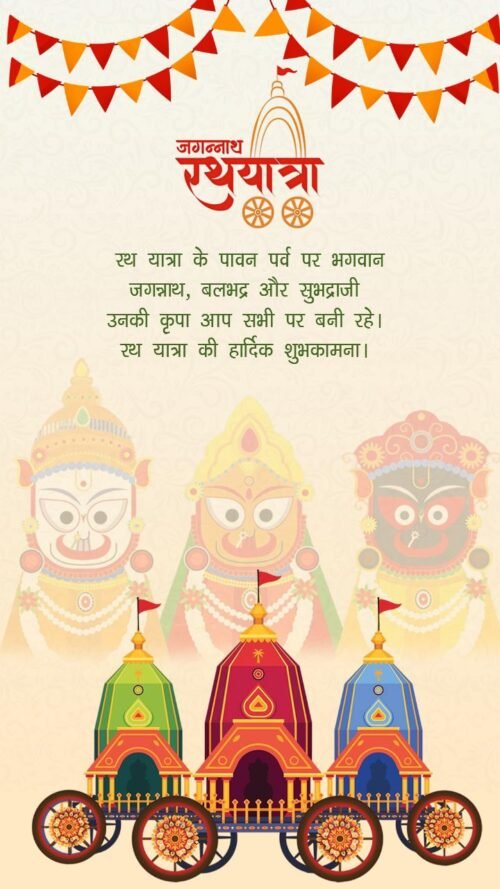 जगन्नाथ
रथयात्रा
रथ यात्रा के पावन पर्व पर भगवान
जगन्नाथ, बलभद्र और सुभद्राजी
उनकी कृपा आप सभी पर बनी रहे।
रथ यात्रा की हार्दिक शुभकामना।